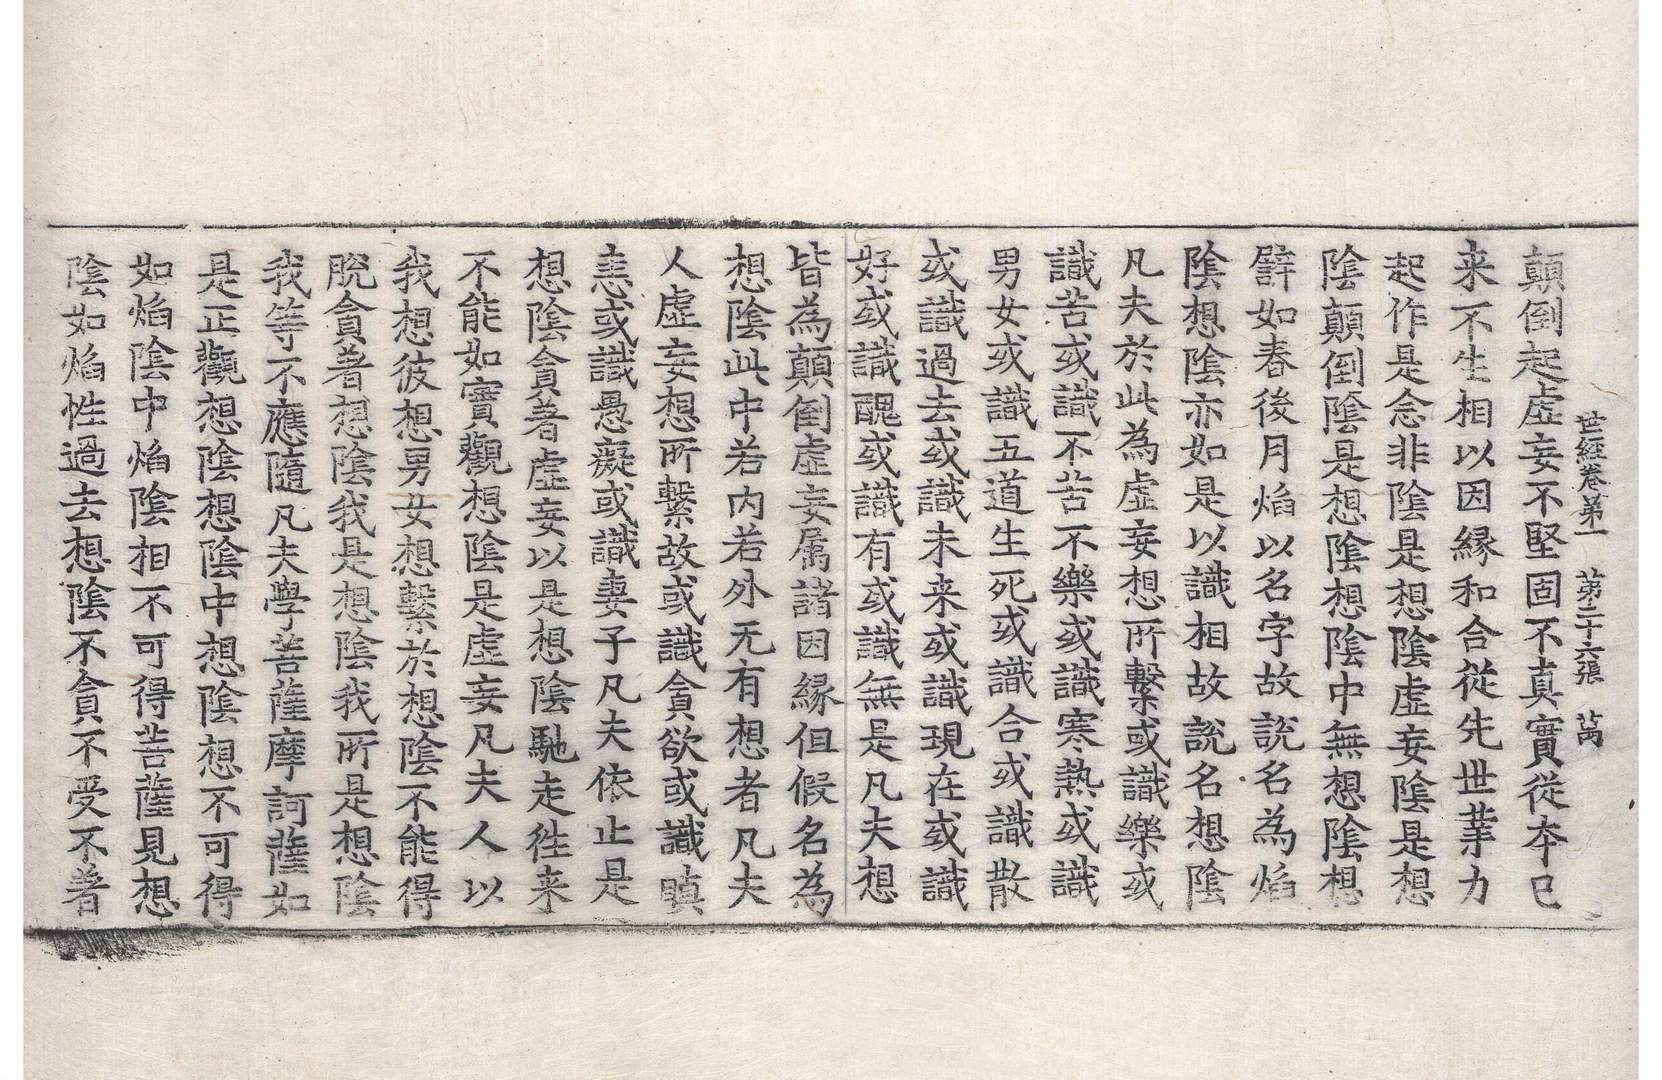 世經卷第一 第二十六張 萬
顛倒起虛妄不堅固不真實從本已
来不生相以因縁和合從先世業力
起作是念非陰是想陰虛妄陰是想
陰顛倒陰是想陰想陰中無想陰想
譬如春後月焰以名字故說名為焰
陰想陰亦如是以識相故說名想陰
凡夫於此為虛妄想所繫或識樂或
識苦或識不苦不樂或識寒熱或識
男女或識五道生死或識合或識散
或識過去或識未来或識現在或識
好或識醜或識有或識無是凡夫想
皆為顛倒虛妄属諸因縁但假名為
想陰此中若内若外无有想者凡夫
人虛妄想所繫故或識貪欲或識瞋
恚或識愚癡或識妻子凡夫依止是
想陰貪著虛妄以是想陰馳走徃来
不能如實觀想陰是虛妄凡夫人以
我想彼想男女想繫於想陰不能得
脫貪著想陰我是想陰我所是想陰
我等不應隨凡夫學菩薩摩訶薩如
是正觀想陰想陰中想陰想不可得
如焰陰中焰陰相不可得菩薩見想
陰如焰性過去想陰不貪不受不著